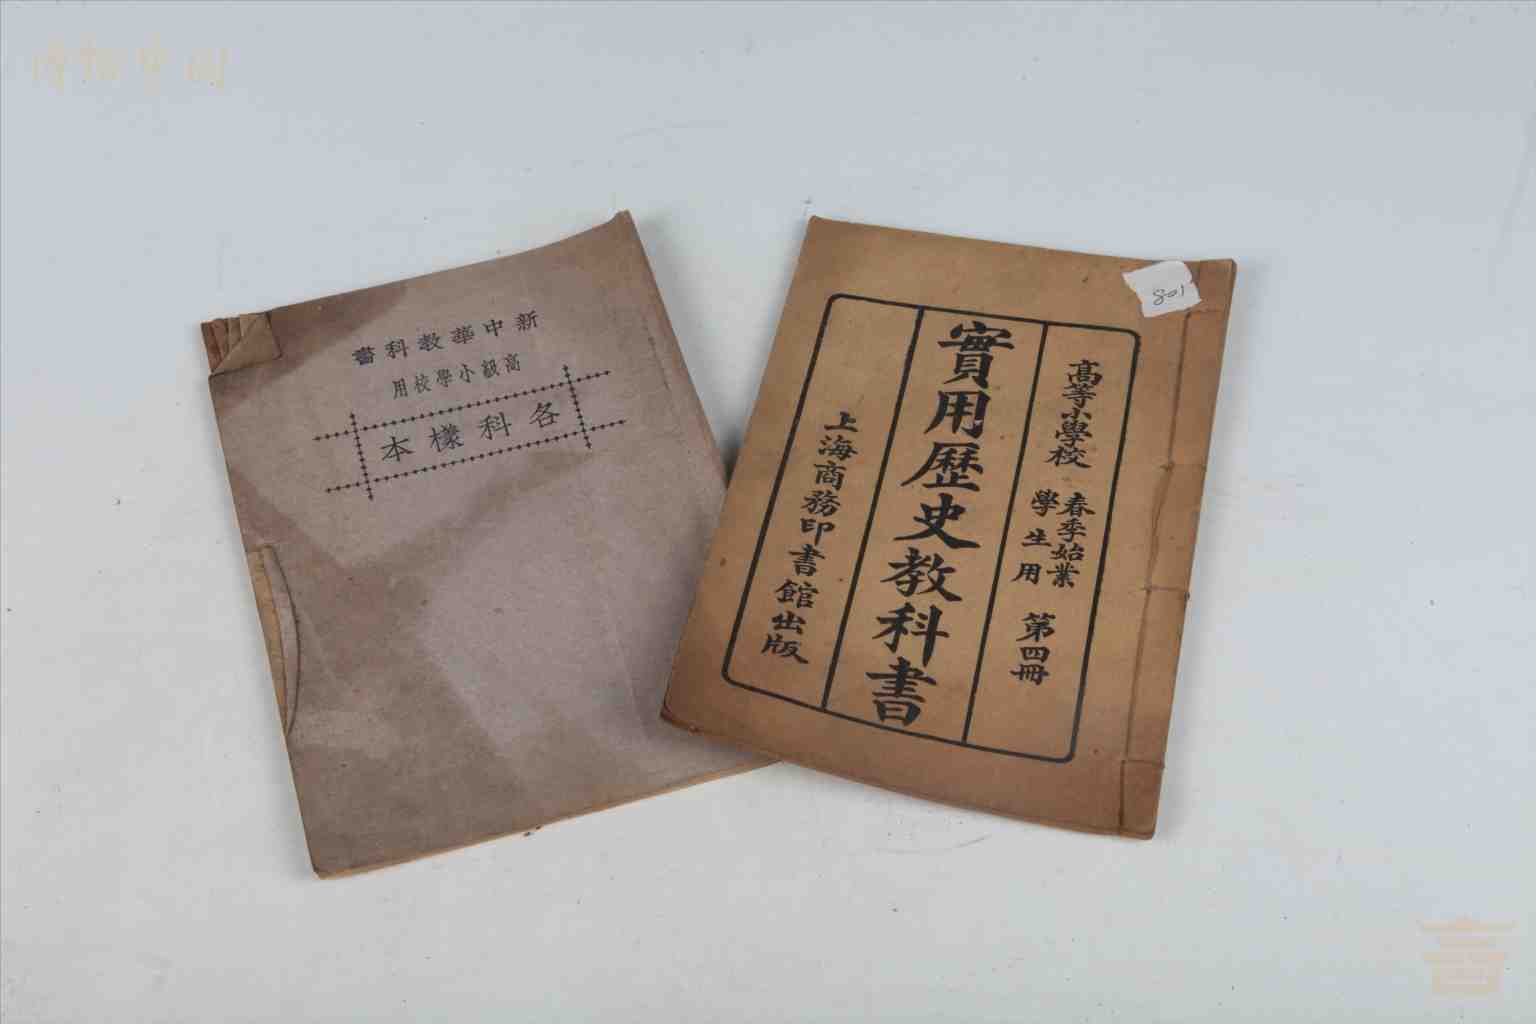 博物中国
新中華教科書
高級小學校用
各科樣本
801
高等小學校
春季始業
學生用
第四冊
實用歷史教科書
上海商務印書館出版